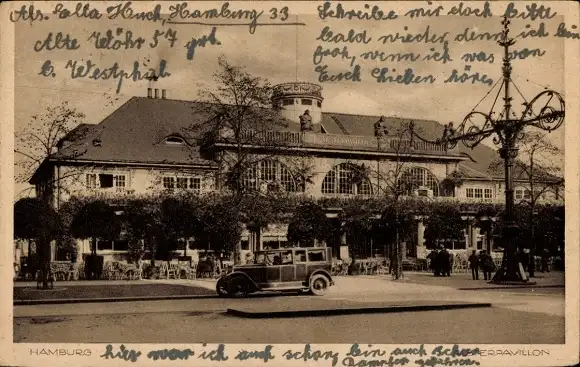 Abs. Ella Huck, Hamburg 33
Alte Wöhr 57 ptr.
b. Westphal
Schreibe mir doch bitte
bald wieder, denn ich bin
froh, wenn ich was von
Euch Lieben höre.
HAMBURG
hier war ich auch schon bin auch schon
Dampfer gefahren.
ERPAVILLON